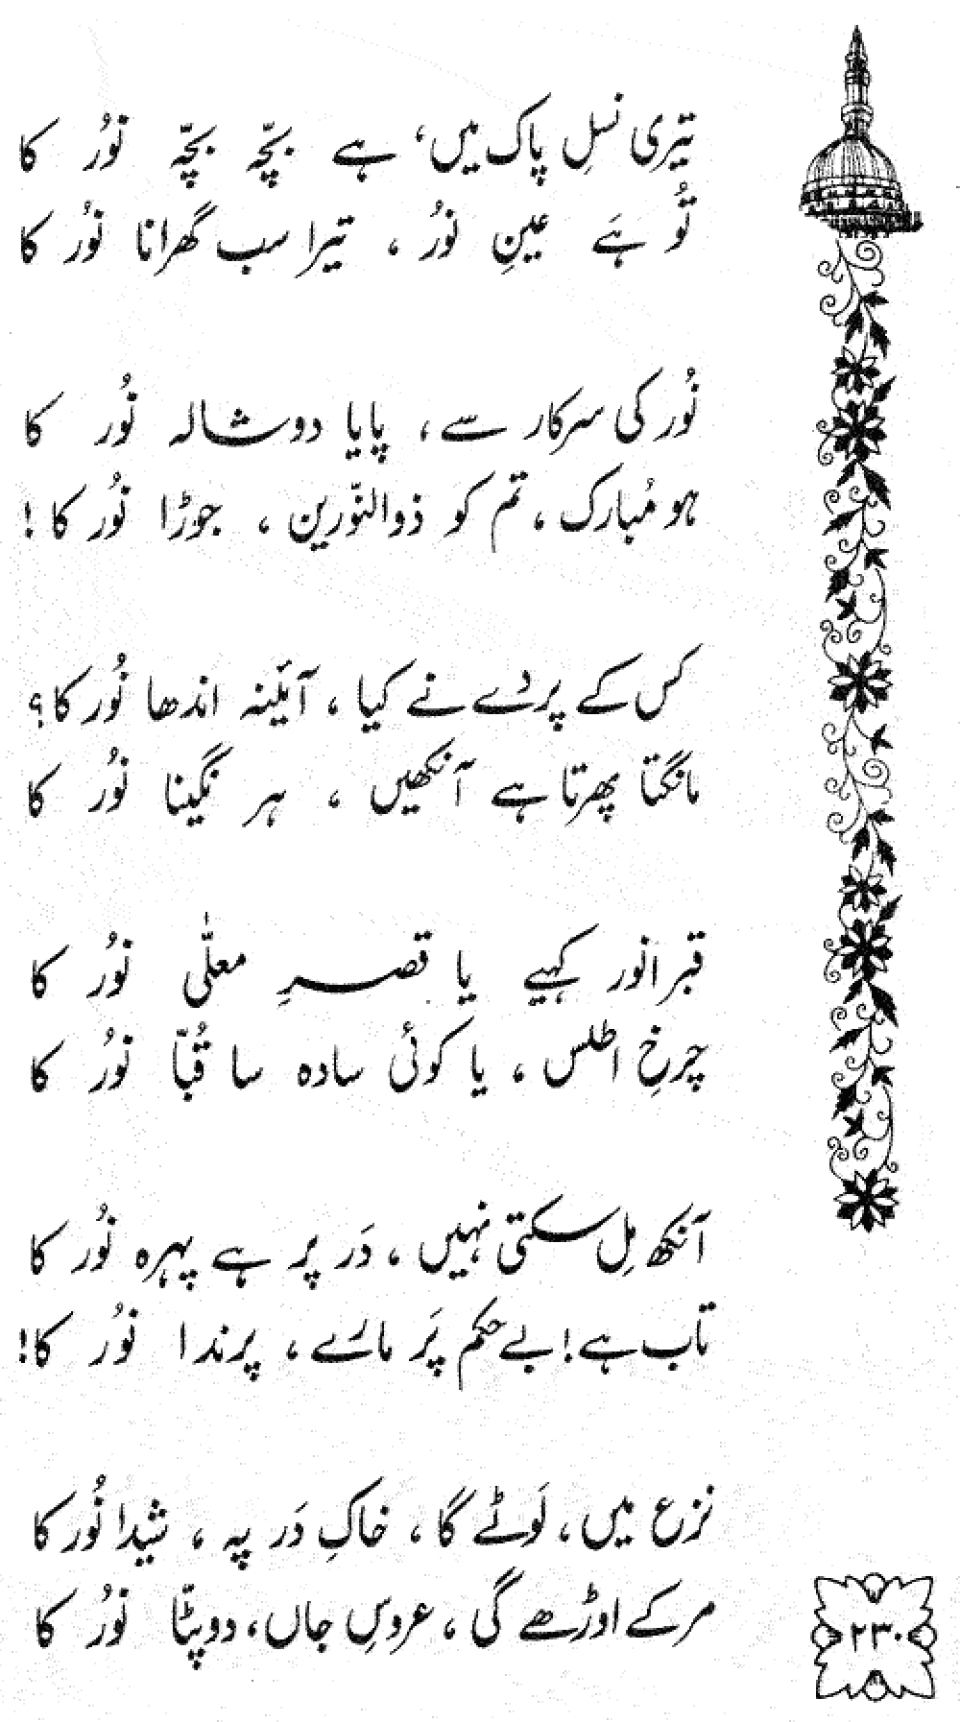 تیری نسلِ پاک میں، ہے بچّہ بچّہ نوُر کا
تُو ہَے عینِ نوُر ، تیرا سب گھرانا نوُر کا
نُور کی سرکار سے ، پایا دوشالہ نُور کا
ہو مُبارک ، تم کو ذوالنّورین ، جوڑا نُور کا !
کس کے پردے نے کیا ، آئینہ اندھا نُور کا؟
مانگتا پھرتا ہے آنکھیں ، ہر نگینا نوُر کا
قبر انور کہیے یا قصرِ معلّٰی نوُر کا
چرخِ اطلس ، یا کوئی سادہ سا قُبّا نوُر کا
آنکھ مِل سکتی نہیں ، دَر پر ہے پہرہ نُور کا
تاب ہے! بے حکم پَر مارے ، پرندا نوُر کا!
نزع میں ، لَوٹے گا ، خاکِ دَر پہ ، شیدا نُور کا
مر کے اوڑھے گی ، عروسِ جاں، دوپٹّا نوُر کا
۲۳۰